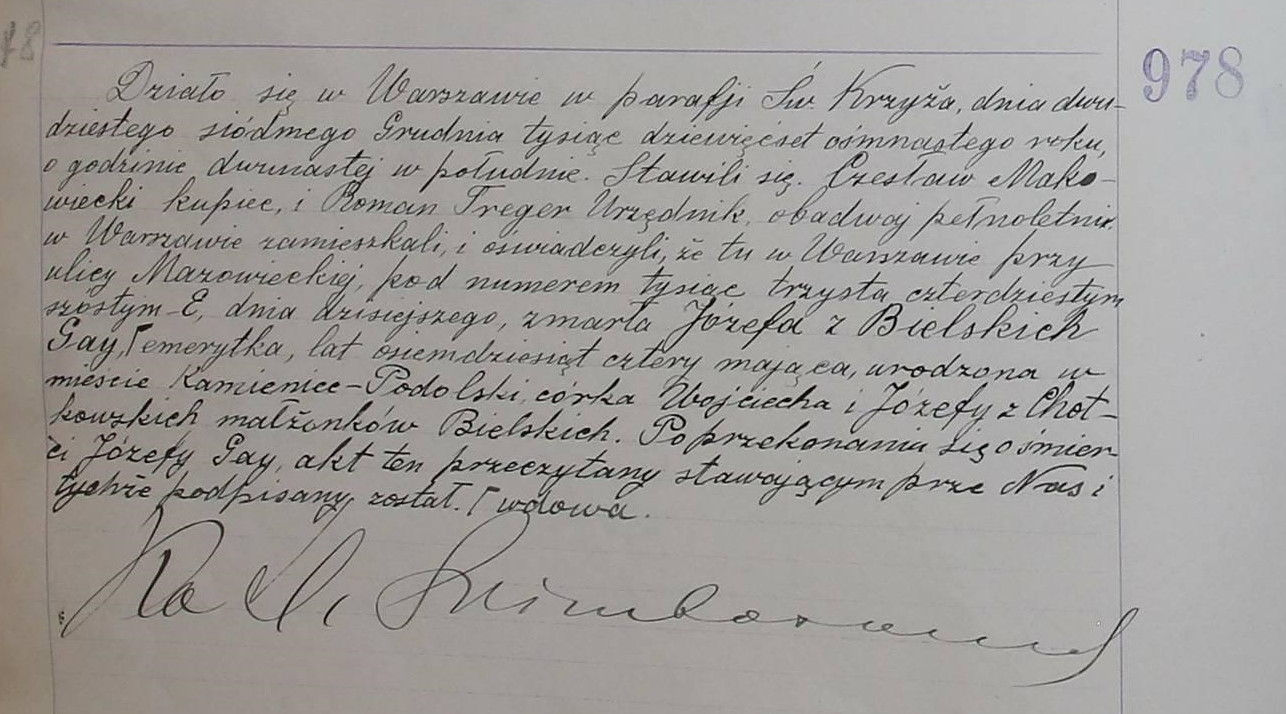 18
978
Działo się w Warszawie w parafji Św Krzyża, dnia dwu-
dziestego siódmego Grudnia tysiąc dziewięćset ośmnastego roku,
o godzinie dwunastej w południe. Stawili się. Czesław Mako-
wiecki kupiec, i Roman Treger Urzędnik, obadwaj pełnoletni,
w Warszawie zamieszkali, i oświadczyli, że tu w Warszawie przy
ulicy Mazowieckiej, pod numerem tysiąc trzysta czterdziestym
szóstym-E, dnia dzisiejszego, zmarła Józefa z Bielskich
Gay,Γ emerytka, lat osiemdziesiąt cztery mająca, urodzona w
mieście Kamieniec-Podolski, córka Wojciecha i Józefy z Chot-
kowskich małżonków Bielskich. Po przekonaniu się o śmier-
ci Józefy Gay, akt ten przeczytany stawającym prze Nas i
tychże podpisany został. Γ wdowa.